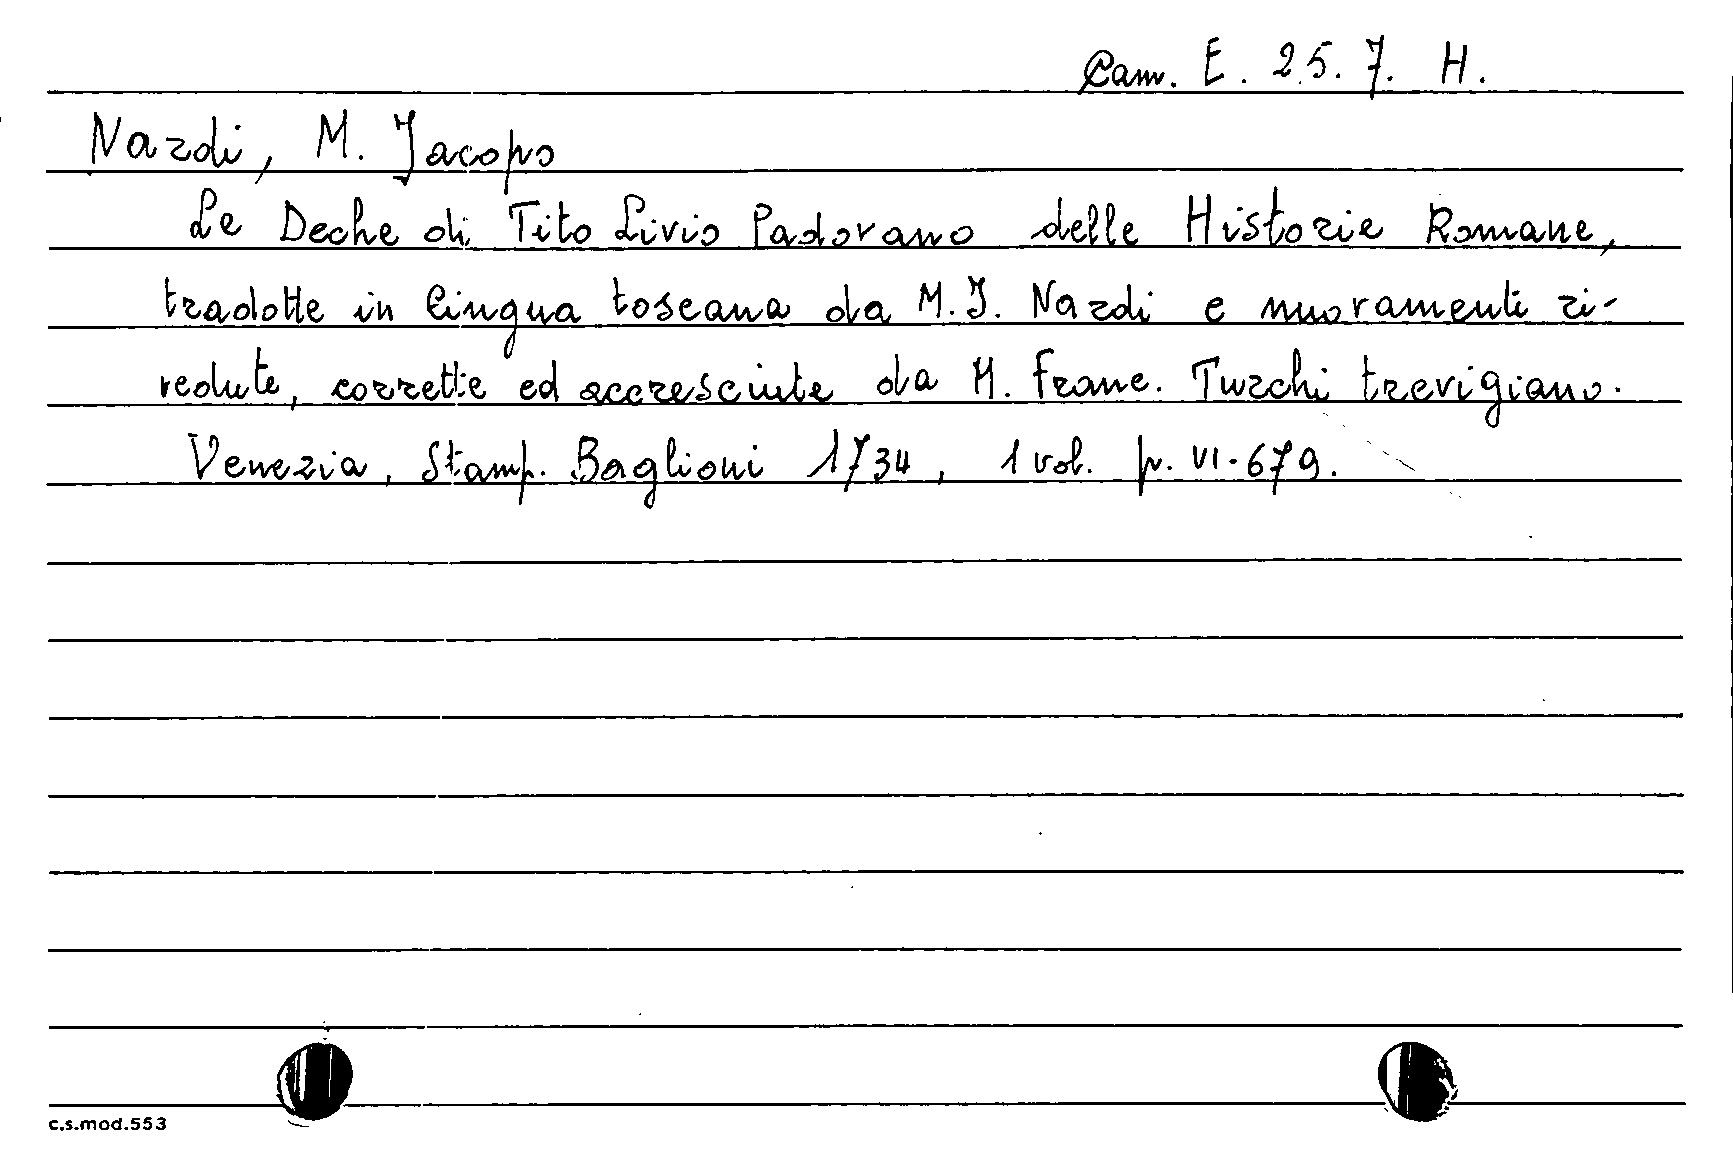 Cam. E. 25. 7. H.
Nardi, M. Jacopo
Le Deche di Tito Livio Padovano delle Historie Romane,
tradotte in lingua toscana da M. J. Nardi e nuovamenti ri-
vedute, corrette ed accresciute da M. Franc. Turchi trevigiano.
Venezia, Stamp. Baglioni 1734, 1 vol. p. VI-679.
c.s.mod.553